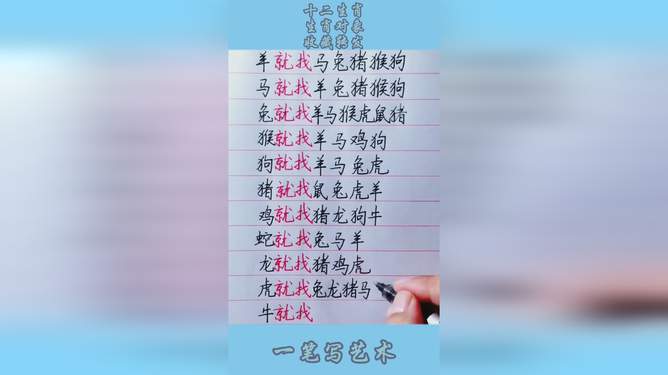 十二生肖
生肖对象
收藏转发
羊就找马兔猪猴狗
马就找羊兔猪猴狗
兔就找羊马猴虎鼠猪
猴就找羊马鸡狗
狗就找羊马兔虎
猪就找鼠兔虎羊
鸡就找猪龙狗牛
蛇就找兔马羊
龙就找猪鸡虎
虎就找兔龙猪马
牛就找
一笔写艺术